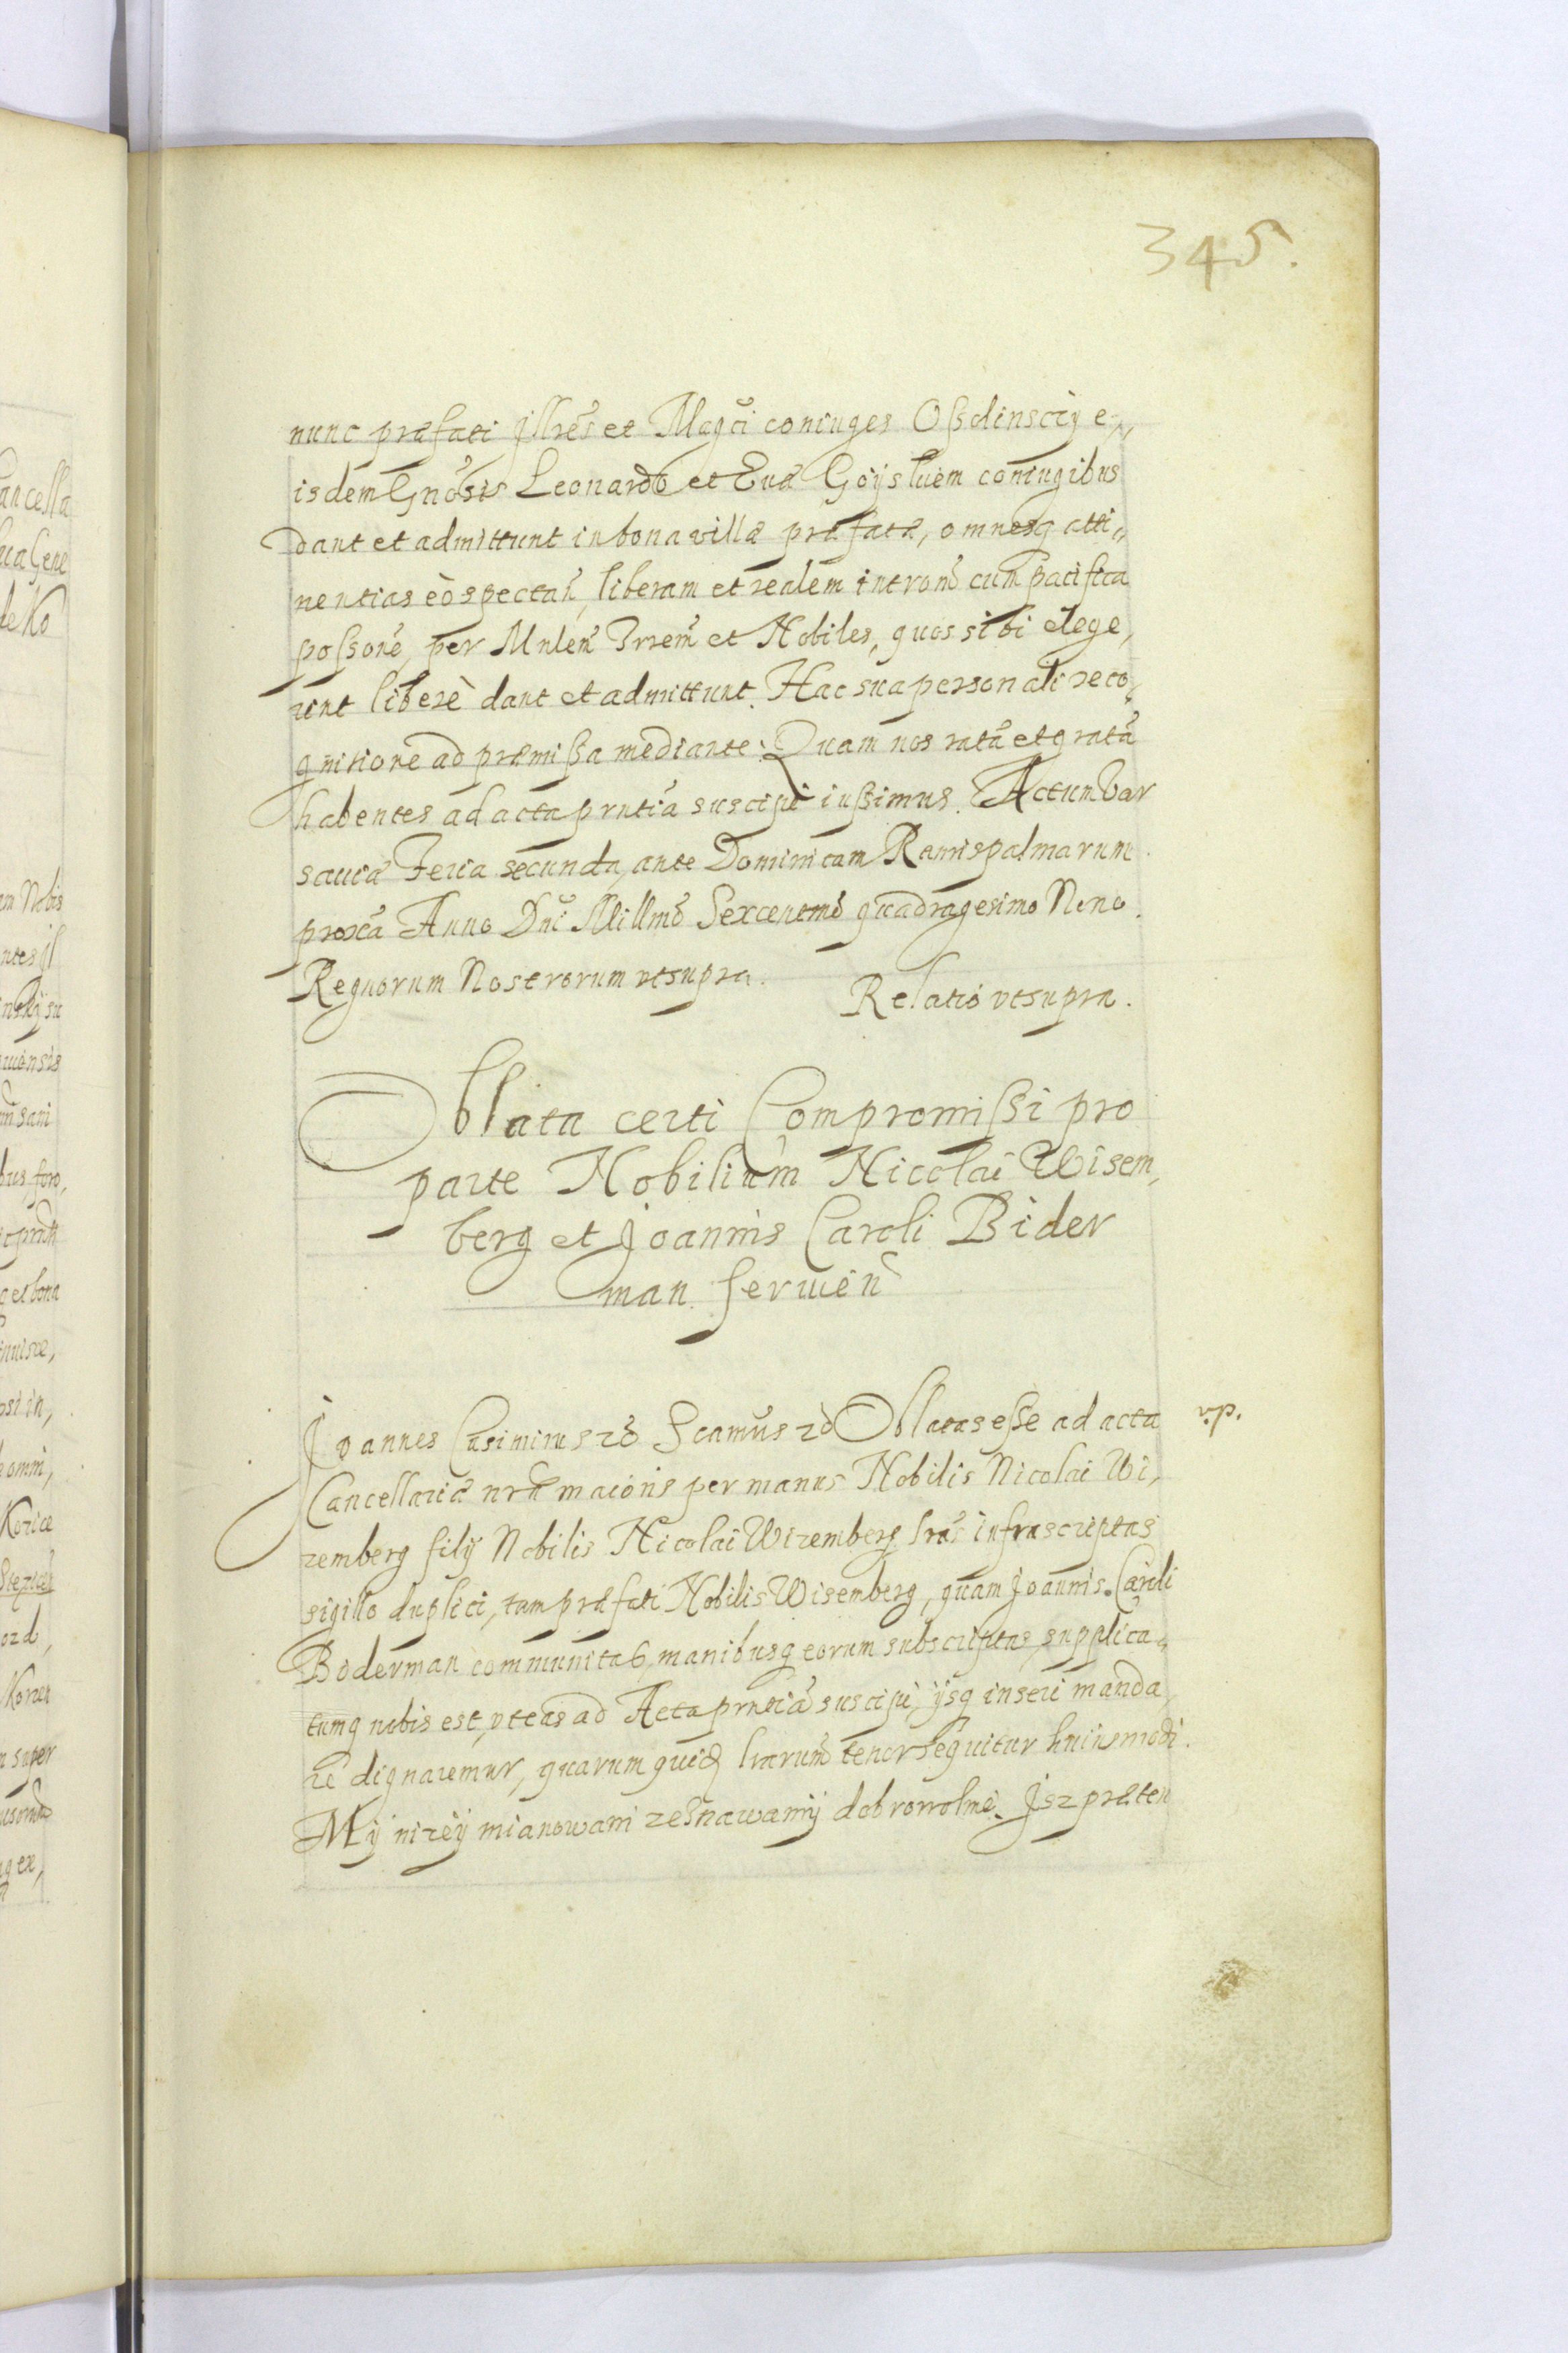 345.
nunc præfati Jllres et Magci coniuges Oßolinscÿ e„
isdem Gnosis Leonardo et Euæ Goÿsluem coniugibus
dant et admittunt in bona villæ præfatæ, omnesq atti„
nentias eò spectań, liberam et realem intromo cum pacifica
poßone, per Mnlem Trrem et Nobiles, quos sibi elege,
rint liberè dant et admittunt. Hac sua personali reco,
gnitione ad præmißa mediante. Quam nos ratã et gratã
habentes ad acta prntiã suscipi iußimus. Actum Var
sauiæ Feria secunda, ante Dominicam Ramispalmarum
proxã Anno Dni Millmo Sexcentmo quadragesimo Nono.
Regnorum Nostrorum vtsupra. Relatio vtsupra.
Oblata certi Compromißi pro
parte Nobilium Nicolai Wisem,
berg et Joannis Caroli Bider
man seruień
Joannes Casimirus ro Scamus ro Oblatas eße ad acta
v.p.
Cancellariæ nræ maioris per manus Nobilis Nicolai Wi,
remberg filij Nobilis Nicolai Wiremberg lras infrascriptas
sigillo duplici, tam præfati Nobilis Wisemberg, quam Joannis Caroli
Biderman communitas, manibusq eorum subscriptas, supplica„
tumq nobis est, vt eas ad Acta prntiã suscipi, ijsq inseri manda,
re dignaremur, quarum quid lrarum tenor sequitur huiusmodi.
Mÿ niżeÿ mianowani zeznawamÿ dobrowolnie. Jsz præten